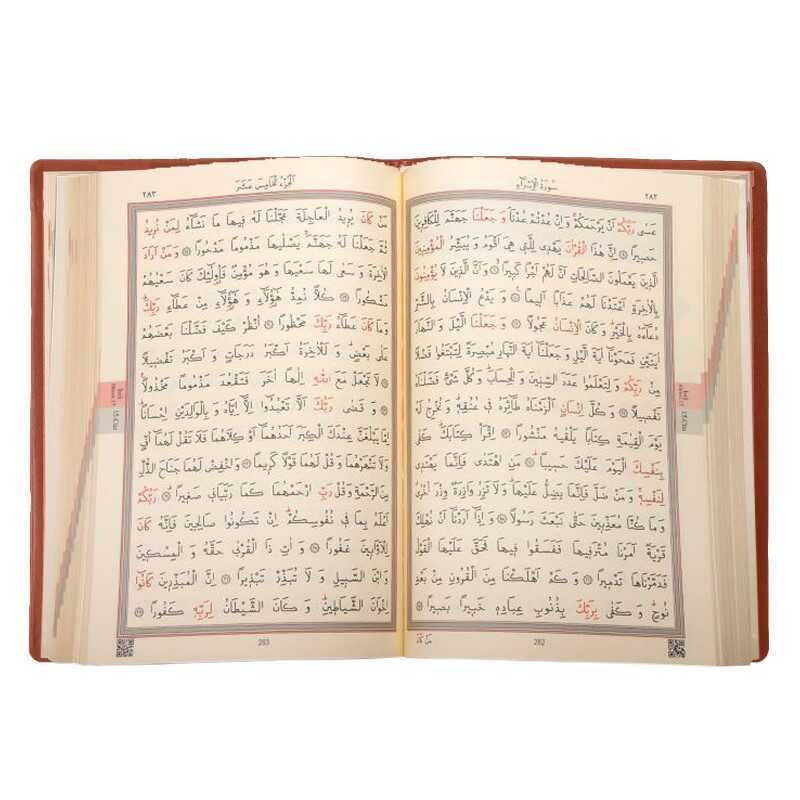 سُورَةُ الْإِسْرَاءِ ٢٨٢
عَسٰى رَبُّكُمْ اَنْ يَرْحَمَكُمْ وَاِنْ عُدْتُمْ عُدْنَا وَجَعَلْنَا جَهَنَّمَ لِلْكَافِرِينَ
حَصِيرًا ۝ اِنَّ هٰذَا الْقُرْاٰنَ يَهْدِي لِلَّتِي هِيَ اَقْوَمُ وَيُبَشِّرُ الْمُؤْمِنِينَ
الَّذِينَ يَعْمَلُونَ الصَّالِحَاتِ اَنَّ لَهُمْ اَجْرًا كَبِيرًا ۝ وَاَنَّ الَّذِينَ لَا يُؤْمِنُونَ
بِالْاٰخِرَةِ اَعْتَدْنَا لَهُمْ عَذَابًا اَلِيمًا ۝ وَيَدْعُ الْاِنْسَانُ بِالشَّرِّ
دُعَاءَهُ بِالْخَيْرِ وَكَانَ الْاِنْسَانُ عَجُولًا ۝ وَجَعَلْنَا الَّيْلَ وَالنَّهَارَ
اٰيَتَيْنِ فَمَحَوْنَا اٰيَةَ الَّيْلِ وَجَعَلْنَا اٰيَةَ النَّهَارِ مُبْصِرَةً لِتَبْتَغُوا فَضْلًا
مِنْ رَبِّكُمْ وَلِتَعْلَمُوا عَدَدَ السِّنِينَ وَالْحِسَابَ وَكُلَّ شَيْءٍ فَصَّلْنَاهُ
تَفْصِيلًا ۝ وَكُلَّ اِنْسَانٍ اَلْزَمْنَاهُ طَائِرَهُ فِي عُنُقِهِ وَنُخْرِجُ لَهُ
يَوْمَ الْقِيٰمَةِ كِتَابًا يَلْقٰيهُ مَنْشُورًا ۝ اِقْرَأْ كِتَابَكَ كَفٰى
بِنَفْسِكَ الْيَوْمَ عَلَيْكَ حَسِيبًا ۝ مَنِ اهْتَدٰى فَاِنَّمَا يَهْتَدِي
لِنَفْسِهِ وَمَنْ ضَلَّ فَاِنَّمَا يَضِلُّ عَلَيْهَا وَلَا تَزِرُ وَازِرَةٌ وِزْرَ اُخْرٰى
وَمَا كُنَّا مُعَذِّبِينَ حَتّٰى نَبْعَثَ رَسُولًا ۝ وَاِذَا اَرَدْنَا اَنْ نُهْلِكَ
قَرْيَةً اَمَرْنَا مُتْرَفِيهَا فَفَسَقُوا فِيهَا فَحَقَّ عَلَيْهَا الْقَوْلُ
فَدَمَّرْنَاهَا تَدْمِيرًا ۝ وَكَمْ اَهْلَكْنَا مِنَ الْقُرُونِ مِنْ بَعْدِ
نُوحٍ وَكَفٰى بِرَبِّكَ بِذُنُوبِ عِبَادِهِ خَبِيرًا بَصِيرًا ۝
282
مَنْ كَانَ
15.Cüz
اَلْجُزْءُ الْخَامِسَ عَشَرَ ٢٨٣
مَنْ كَانَ يُرِيدُ الْعَاجِلَةَ عَجَّلْنَا لَهُ فِيهَا مَا نَشَاءُ لِمَنْ نُرِيدُ
ثُمَّ جَعَلْنَا لَهُ جَهَنَّمَ يَصْلٰيهَا مَذْمُومًا مَدْحُورًا ۝ وَمَنْ اَرَادَ
الْاٰخِرَةَ وَسَعٰى لَهَا سَعْيَهَا وَهُوَ مُؤْمِنٌ فَاُولٰئِكَ كَانَ سَعْيُهُمْ
مَشْكُورًا ۝ كُلًّا نُمِدُّ هٰؤُلَاءِ وَهٰؤُلَاءِ مِنْ عَطَاءِ رَبِّكَ
وَمَا كَانَ عَطَاءُ رَبِّكَ مَحْظُورًا ۝ اُنْظُرْ كَيْفَ فَضَّلْنَا بَعْضَهُمْ
عَلٰى بَعْضٍ وَلَلْاٰخِرَةُ اَكْبَرُ دَرَجَاتٍ وَاَكْبَرُ تَفْضِيلًا
۝ لَا تَجْعَلْ مَعَ اللّٰهِ اِلٰهًا اٰخَرَ فَتَقْعُدَ مَذْمُومًا مَخْذُولًا
۝ وَقَضٰى رَبُّكَ اَلَّا تَعْبُدُوا اِلَّا اِيَّاهُ وَبِالْوَالِدَيْنِ اِحْسَانًا
اِمَّا يَبْلُغَنَّ عِنْدَكَ الْكِبَرَ اَحَدُهُمَا اَوْ كِلَاهُمَا فَلَا تَقُلْ لَهُمَا اُفٍّ
وَلَا تَنْهَرْهُمَا وَقُلْ لَهُمَا قَوْلًا كَرِيمًا ۝ وَاخْفِضْ لَهُمَا جَنَاحَ الذُّلِّ
مِنَ الرَّحْمَةِ وَقُلْ رَبِّ ارْحَمْهُمَا كَمَا رَبَّيَانِي صَغِيرًا ۝ رَبُّكُمْ
اَعْلَمُ بِمَا فِي نُفُوسِكُمْ اِنْ تَكُونُوا صَالِحِينَ فَاِنَّهُ كَانَ
لِلْاَوَّابِينَ غَفُورًا ۝ وَاٰتِ ذَا الْقُرْبٰى حَقَّهُ وَالْمِسْكِينَ
وَابْنَ السَّبِيلِ وَلَا تُبَذِّرْ تَبْذِيرًا ۝ اِنَّ الْمُبَذِّرِينَ كَانُوا
اِخْوَانَ الشَّيَاطِينِ وَكَانَ الشَّيْطَانُ لِرَبِّهِ كَفُورًا ۝
283
15.Cüz